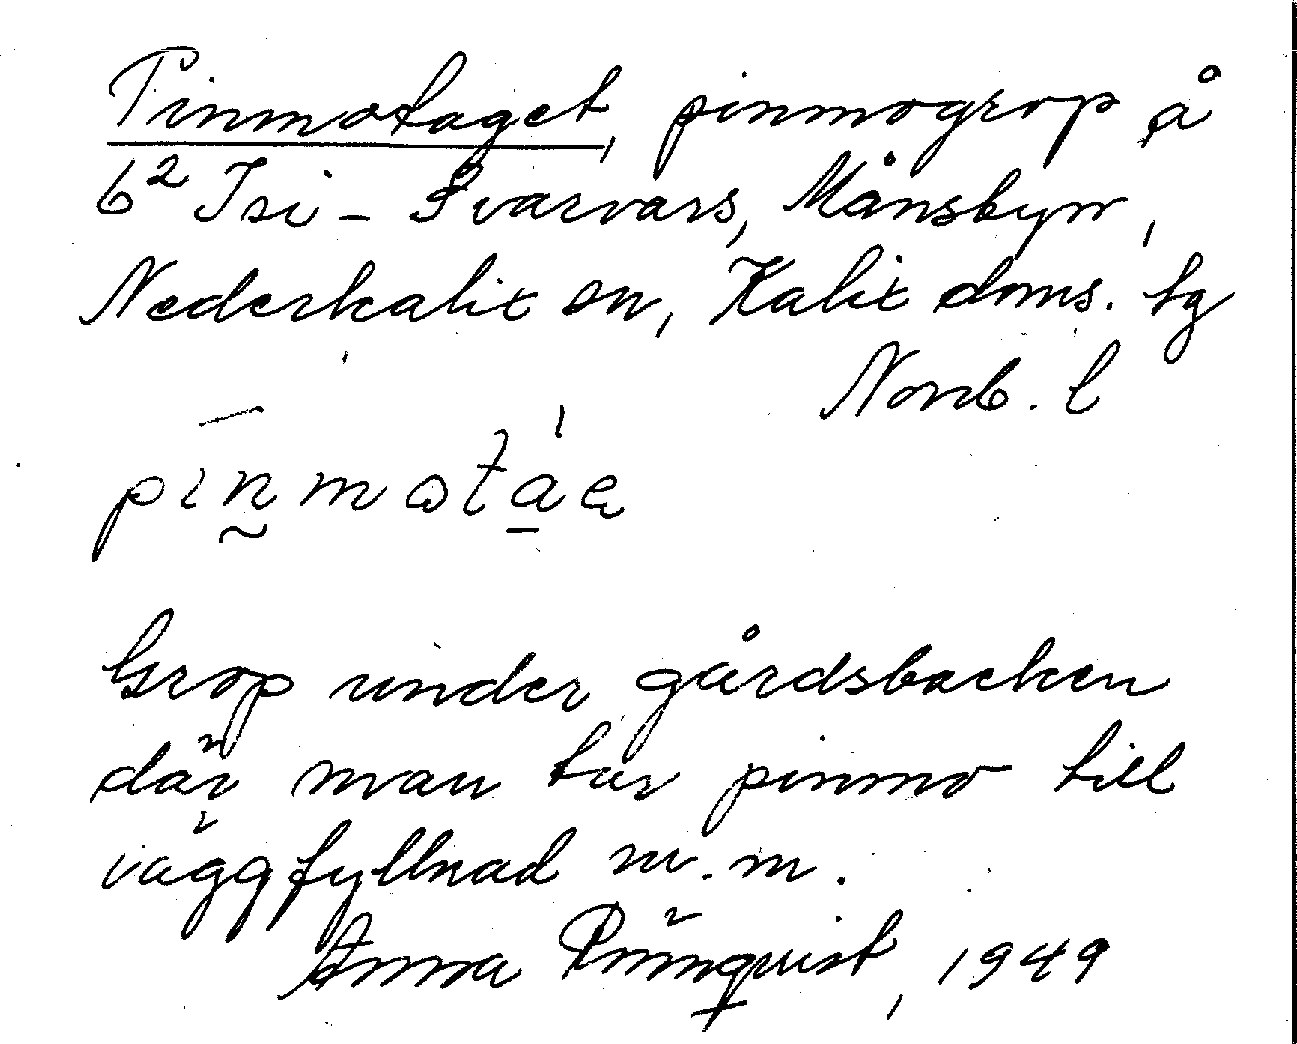 Pinmotaget, pinmogrop å
6² Isi - Svarvars, Månsbyn,
Nederkalix sn, Kalix doms. tg
Norrb. l
pinmωtáe
Grop under gårdsbacken
där man tar pinmo till
väggfyllnad m.m.
Anna Rönnqvist, 1949